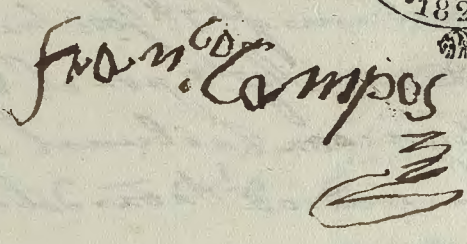 182
Fran.co Campos